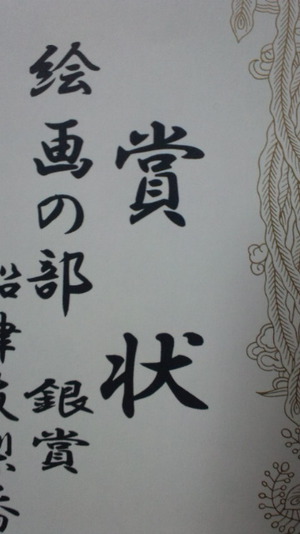 賞状
絵画の部 銀賞
船津